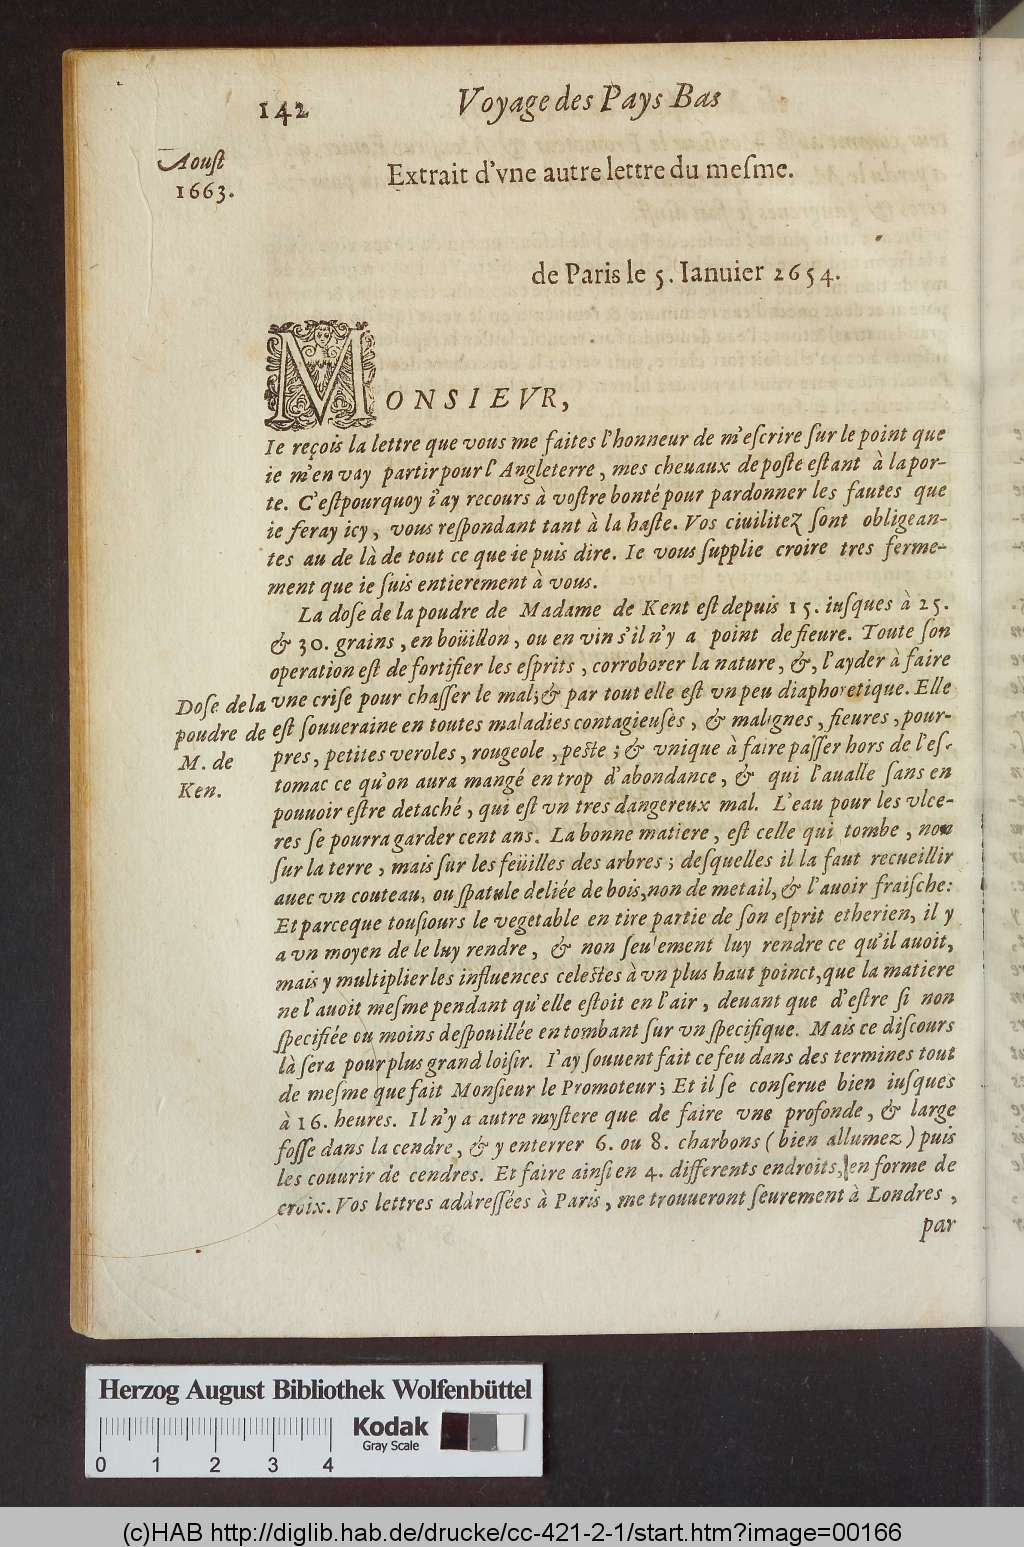 142 Voyage des Pays Bas
Aoust
1663.
Extrait d'vne autre lettre du meſme.
de Paris le 5. Ianuier 2654.
MONSIEVR,
Ie reçois la lettre que vous me faites l'honneur de m'eſcrire ſur le point que
ie m'en vay partir pour l'Angleterre, mes cheuaux de poſte eſtant à la por-
te. C'eſtpourquoy i'ay recours à voſtre bonté pour pardonner les fautes que
ie feray icy, vous reſpondant tant à la haſte. Vos ciuilitez ſont obligean-
tes au de là de tout ce que ie puis dire. Ie vous ſupplie croire tres ferme-
ment que ie ſuis entierement à vous.
La doſe de la poudre de Madame de Kent eſt depuis 15. iuſques à 25.
& 30. grains, en boüillon, ou en vin s'il n'y a point de fieure. Toute ſon
operation eſt de fortifier les eſprits, corroborer la nature, &, l'ayder à faire
vne criſe pour chaſſer le mal; & par tout elle eſt vn peu diaphoretique. Elle
eſt ſouueraine en toutes maladies contagieuſes, & malignes, fieures, pour-
pres, petites veroles, rougeole, peſte; & vnique à faire paſſer hors de l'eſ-
tomac ce qu'on aura mangé en trop d'abondance, & qui l'aualle ſans en
pouuoir eſtre detaché, qui eſt vn tres dangereux mal. L'eau pour les vlce-
res ſe pourra garder cent ans. La bonne matiere, eſt celle qui tombe, non
ſur la terre, mais ſur les feüilles des arbres; deſquelles il la faut recueillir
auec vn couteau, ou ſpatule deliée de bois, non de metail, & l'auoir fraiſche:
Et parceque touſiours le vegetable en tire partie de ſon eſprit etherien, il y
a vn moyen de le luy rendre, & non ſeulement luy rendre ce qu'il auoit,
mais y multiplier les influences celeſtes à vn plus haut poinct, que la matiere
ne l'auoit meſme pendant qu'elle eſtoit en l'air, deuant que d'eſtre ſi non
ſpecifiée ou moins deſpouillée en tombant ſur vn ſpecifique. Mais ce diſcours
là ſera pour plus grand loiſir. I'ay ſouuent fait ce feu dans des termines tout
de meſme que fait Monſieur le Promoteur; Et il ſe conſerue bien iuſques
à 16. heures. Il n'y a autre myſtere que de faire vne profonde, & large
foſſe dans la cendre, & y enterrer 6. ou 8. charbons (bien allumez) puis
les couurir de cendres. Et faire ainſi en 4. differents endroits, en forme de
croix. Vos lettres addreſſées à Paris, me trouueront ſeurement à Londres,
par
Doſe de la
poudre de
M. de
Ken.
Herzog August Bibliothek Wolfenbüttel
Kodak
Gray Scale
0 1 2 3 4
(c)HAB http://diglib.hab.de/drucke/cc-421-2-1/start.htm?image=00166